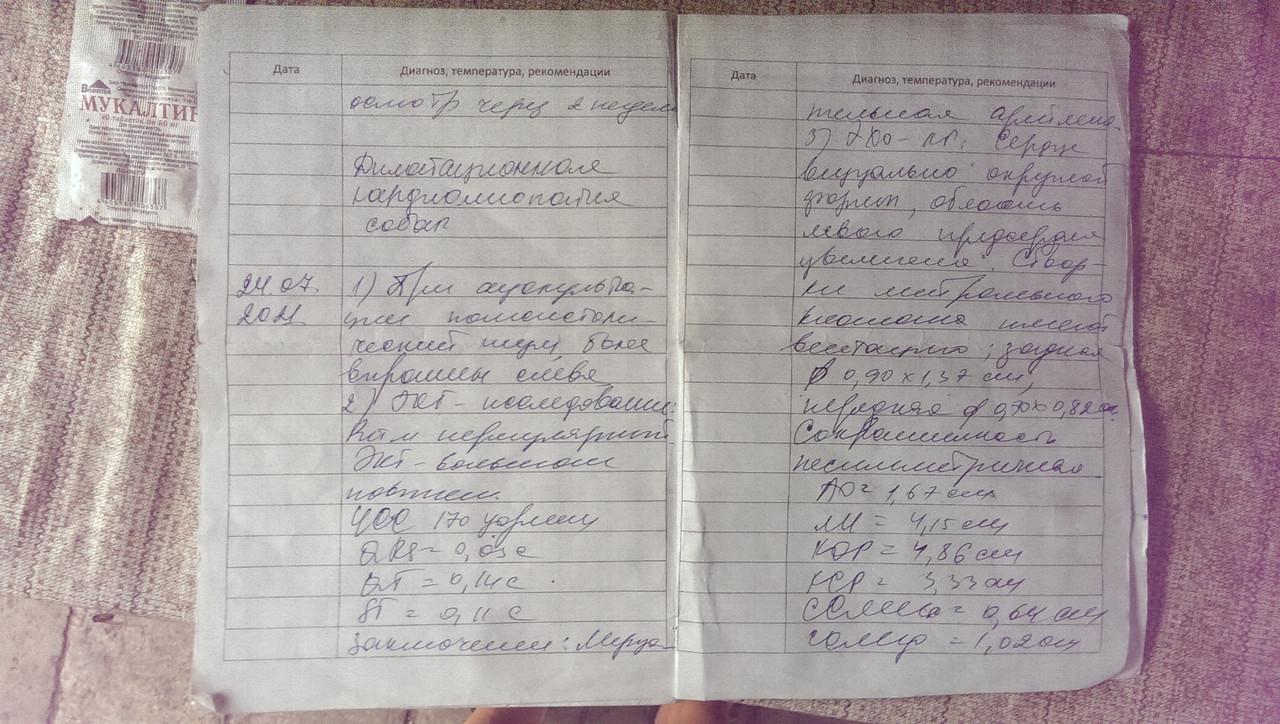 МУКАЛТИН
Дата
Диагноз, температура, рекомендации
осмотр через 2 недел
Дилатационная
кардиомиопатия
собак
24.07.
1) При аускульта-
ции
ческий шум более
слева
2) ЭКГ-исследование:
Ритм нерегулярный
ЭКГ-вольтаж
ЧСС 170 уд/мин
QRS = 0,03 с
QT = 0,14 с
ST = 0,11 с
Заключение: Мерца-
Дата
Диагноз, температура, рекомендации
тельная аритмия.
3) ЭХО-КГ: Сердце
визуально округлой
формы, область
левого предсердия
увеличена. Створ-
ки митрального
клапана имеют
; задняя
0,90 х 1,37 см,
передняя 0,70 х 0,82 см.
Сократимость
несимметричная
АО = 1,67 см
ЛП = 4,15 см
КДР = 4,86 см
КСР = 3,33 см
= 0,64 см
= 1,02 см